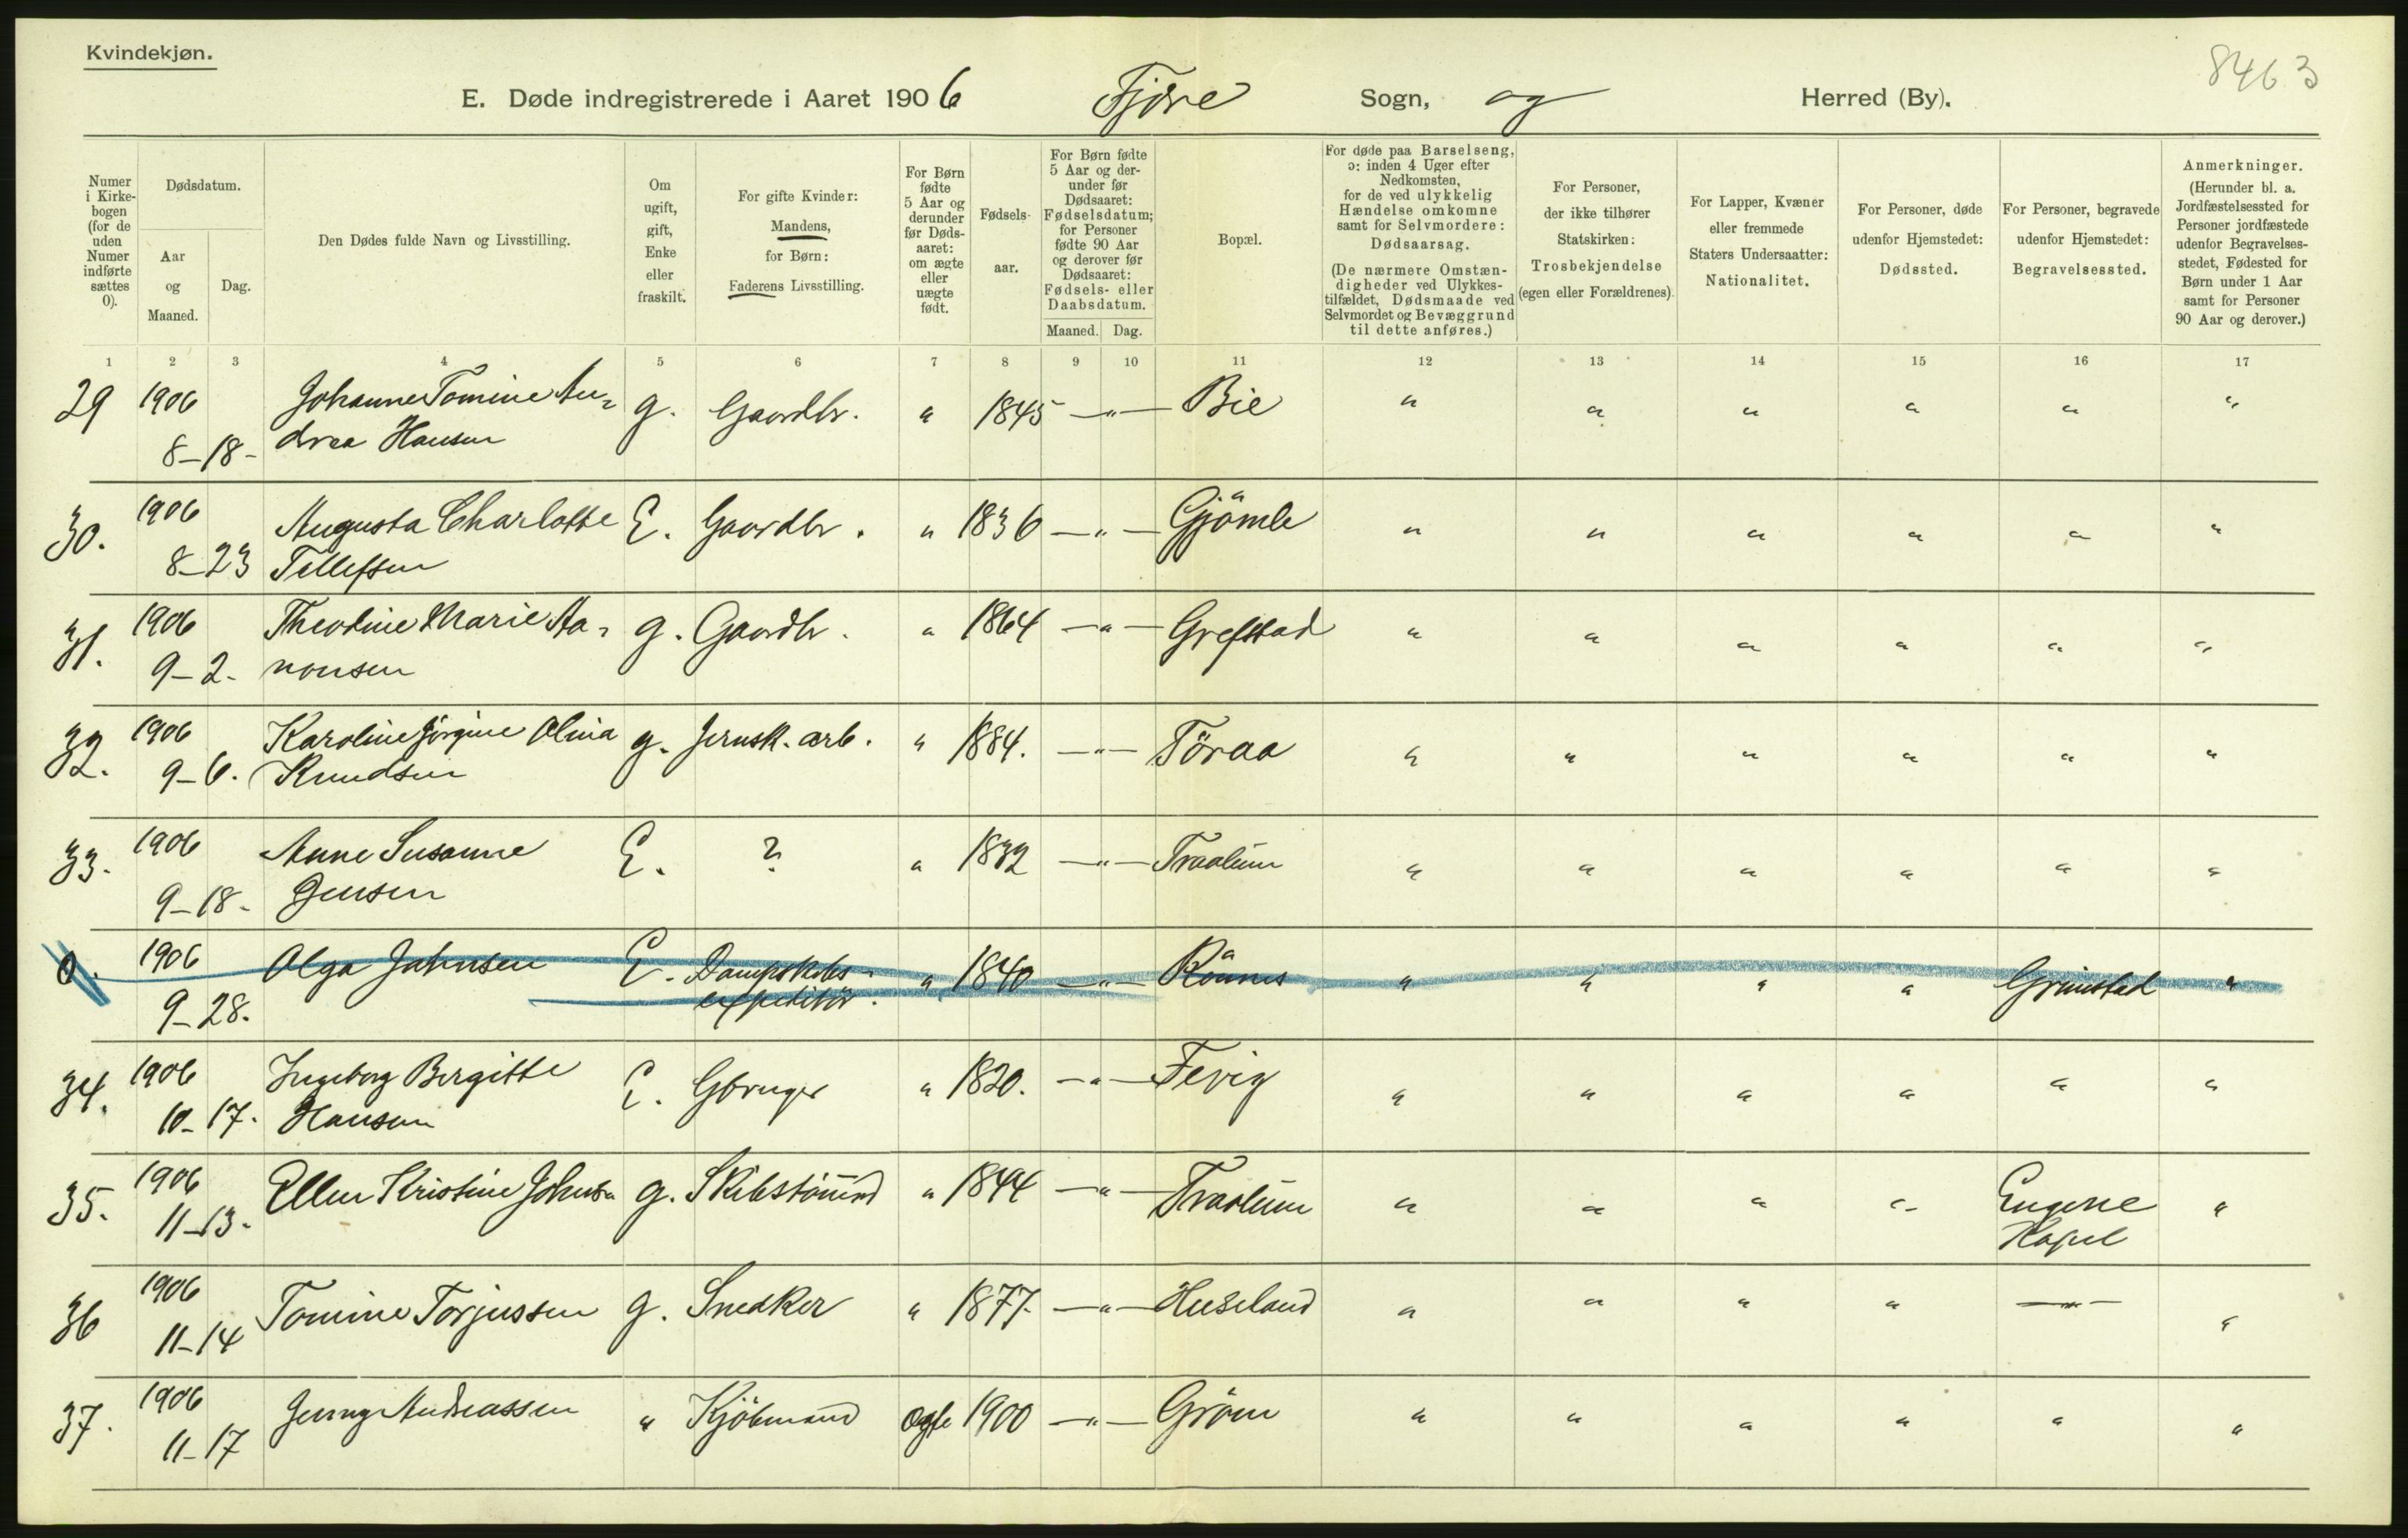 Kvindekjøn.
8463
E. Døde indregistrerede i Aaret 1906 Fjære Sogn, og Herred (By).
Numer i Kirke-bogen (for de uden Numer indførte sættes 0).
Dødsdatum.
Aar og Maaned.
Dag.
Den Dødes fulde Navn og Livsstilling.
Om ugift, gift, Enke eller fraskilt.
For gifte Kvinder: Mandens, for Børn: Faderens Livsstilling.
For Børn fødte 5 Aar og derunder før Døds-aaret: om ægte eller uægte født.
Fødsels-aar.
For Børn fødte 5 Aar og der-under før Dødsaaret: Fødselsdatum; for Personer fødte 90 Aar og derover før Dødsaaret: Fødsels- eller Daabsdatum.
Maaned. Dag.
Bopæl.
For døde paa Barselseng, ɔ: inden 4 Uger efter Nedkomsten, for de ved ulykkelig Hændelse omkomne samt for Selvmordere: Dødsaarsag.
(De nærmere Omstæn-digheder ved Ulykkes-tilfældet, Dødsmaade ved Selvmordet og Bevæggrund til dette anføres.)
For Personer, der ikke tilhører Statskirken: Trosbekjendelse (egen eller Forældrenes).
For Lapper, Kvæner eller fremmede Staters Undersaatter: Nationalitet.
For Personer, døde udenfor Hjemstedet: Dødssted.
For Personer, begravede udenfor Hjemstedet: Begravelsessted.
Anmerkninger.
(Herunder bl. a. Jordfæstelsessted for Personer jordfæstede udenfor Begravelses-stedet, Fødested for Børn under 1 Aar samt for Personer 90 Aar og derover.)
1 2 3 4 5 6 7 8 9 10 11 12 13 14 15 16 17
29 1906 Johanne Tomine An= g. Gaardbr. " 1845 —"— Bie " " " " " "
8-18- drea Hansen
30. 1906 Augusta Charlotte E. Gaardbr. " 1836 —"— Gjömle " " " " " "
8-23 Tellefsen
31. 1906 Theodine Marie Aa- g. Gaardbr. " 1864 —"— Grefstad " " " " " "
9-2- nonsen
32. 1906 Karoline Jörgine Olina g. Jernsk. arb. " 1884. —"— Töraa " " " " " "
9-6. Knudsen
33. 1906 Anne Susanne E. ? " 1832 —"— Traalum " " " " " "
9-18- Jensen
0. 1906 Olga Jahnsen E. Dampskibs- " 1840 —"— Rönnes " " " " Grimstad "
9-28. expeditör.
34. 1906 Ingeborg Bergitte E. Gbruger " 1820. —"— Fevig " " " " " "
10-17. Hansen
35. 1906 Ellen Kristine g. Skibstömmd " 1844 —"— Traalum " " " " Eugene "
11-13- Kapel
36 1906 Tomine Torjussen g. Snedker " 1877- —"— Huseland " " " " —"— "
11-14
37. 1906 Jenny Andreassen " Kjöbmand ægte 1900 —"— Gröm " " " " " "
11-17